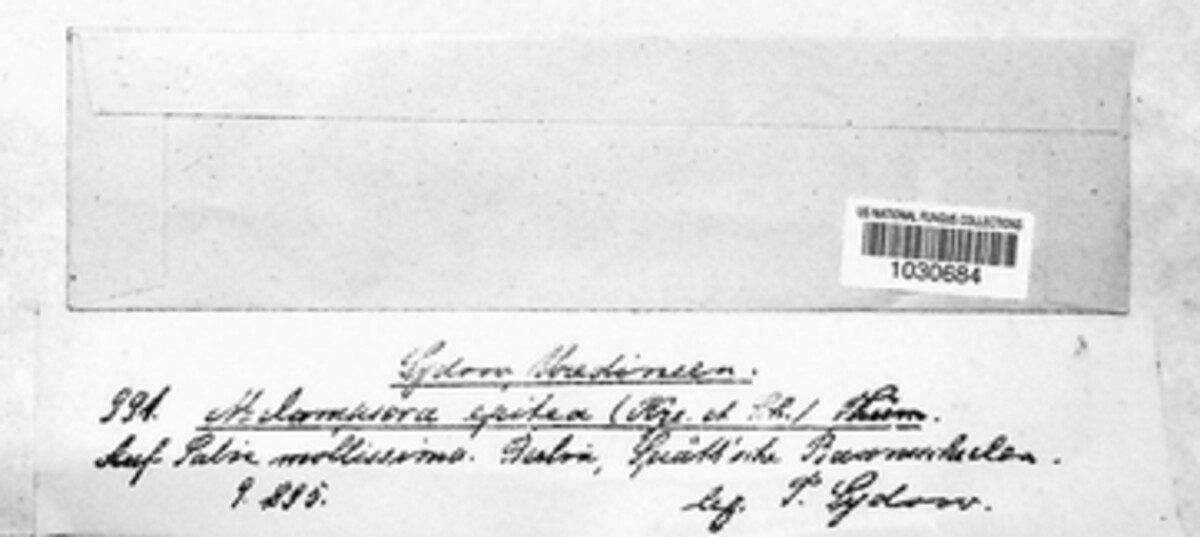 US NATIONAL FUNGUS COLLECTIONS
1030684
Sydow, Uredineen.
991. Melampsora epitea (Kze. et Sch.) Thüm.
Auf Salix mollissima. Berlin, Späth'sche Baumschulen.
9. 895.
leg. P. Sydow.